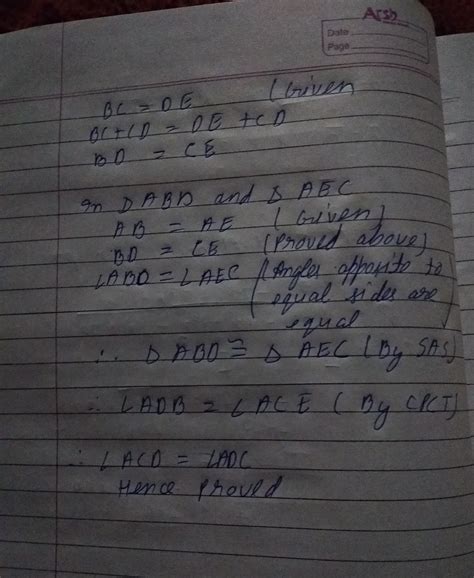 Arsh
Date
Page
BC = DE (Given
BC+CD = DE +CD
BD = CE
In Δ ABD and Δ AEC
AB = AE (Given)
BD = CE (Proved above)
∠ABD = ∠AEC (Angles opposite to
equal sides are
equal
∴ Δ ABD ≅ Δ AEC (By SAS)
∴ ∠ADB = ∠ACE (By CPCT)
∴ ∠ACD = ∠ADC
Hence Proved